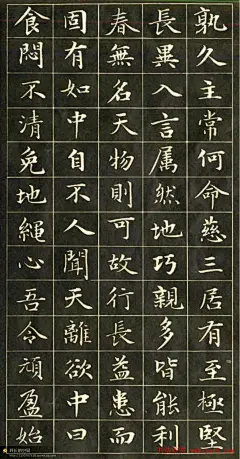 孰久主常何命慈三居有至極堅
長異入言属然地巧親多皆能利
春無名天物則可故行長益患而
固有如中自不人聞天離欲中曰
食悶不清免地繩心吾令頑盈始